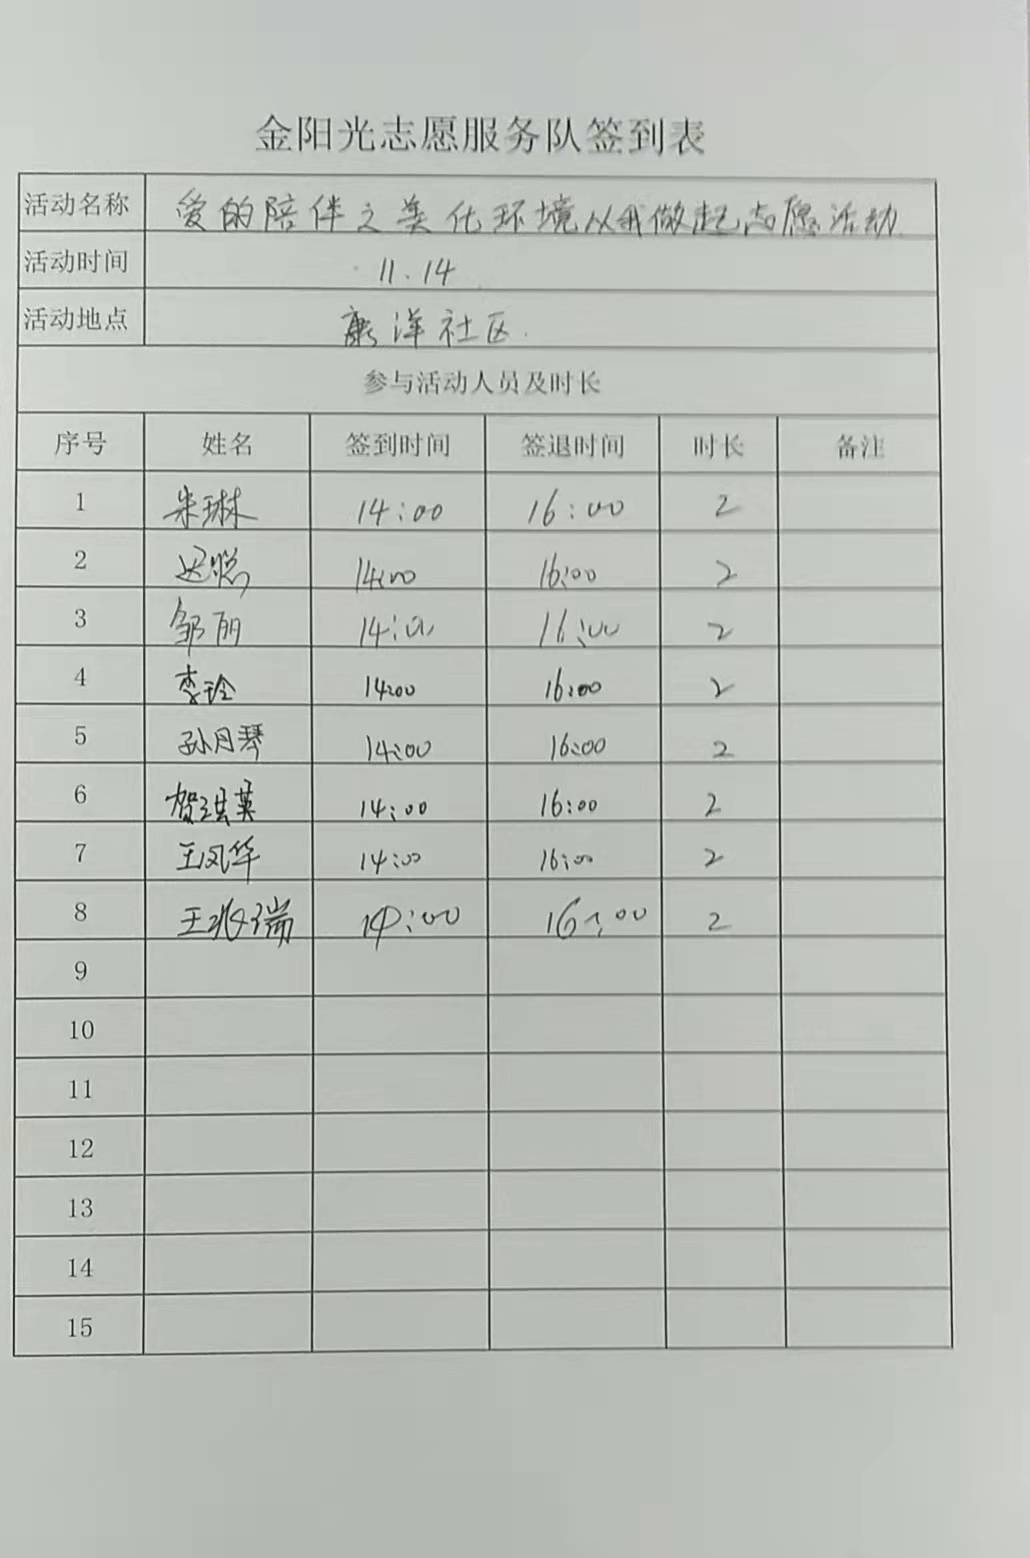 金阳光志愿服务队签到表
活动名称 爱的陪伴之美化环境从我做起志愿活动
活动时间 11.14
活动地点 康洋社区
参与活动人员及时长
序号 姓名 签到时间 签退时间 时长 备注
1 朱琳 14:00 16:00 2
2 迟聪 14:00 16:00 2
3 邹丽 14:00 16:00 2
4 李玲 14:00 16:00 2
5 孙月琴 14:00 16:00 2
6 贺洪英 14:00 16:00 2
7 王凤华 14:00 16:00 2
8 王兆瑞 14:00 16:00 2
9
10
11
12
13
14
15